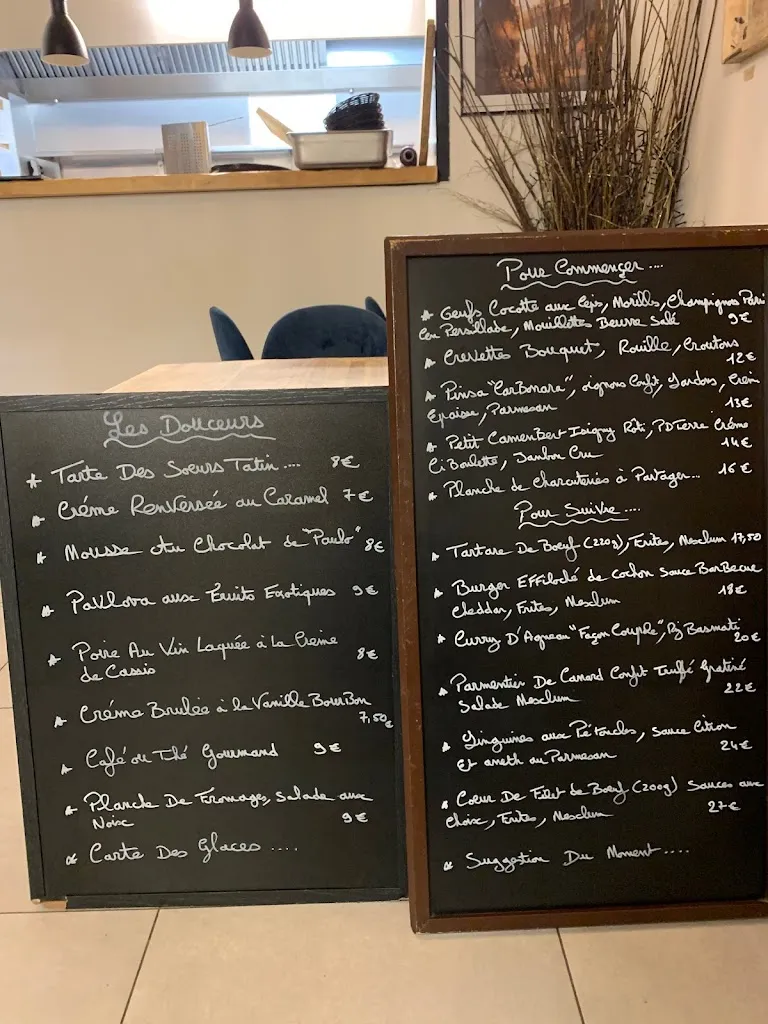 Les Douceurs
Tarte Des Soeurs Tatin.... 8€
Créme Renversée au Caramel 7€
Mousse Au Chocolat de "Paulo" 8€
Pavlova aux Fruits Exotiques 9€
Poire Au Vin Laquée à la Creme
de Cassis 8€
Créme Brulée à la Vanille Bourbon
7,50€
Café ou Thé Gourmand 9€
Planche De Fromages, Salade aux
Noix 9€
Carte Des Glaces ....
Pour Commencer ....
Oeufs Cocotte aux Ceps, Morilles, Champignons Paris
En Persillade, Mouillettes Beurre Salé 9€
Crevettes Bouquet, Rouille, Croutons
12€
Pinsa "Carbonara", oignons Confit, Lardons, Crém
Epaisse, Parmesan 13€
Petit Camembert Isigny Roti, PDTerre Créme
Ciboulette, Jambon Cru 14€
Planche de Charcuteries à Partager... 16€
Pour Suivre ....
Tartare De Boeuf (220g), Frites, Mesclun 17,50
Burger Effiloché de cochon Sauce Barbecue
Cheddar, Frites, Mesclun 18€
Curry D'Agneau "Façon Couple", Rj Basmati
20€
Parmentier De Canard Confit Truffé Gratiné
Salade Mesclun 22€
Linguines aux Pétoncles, Sauce Citron
Et aneth au Parmesan 24€
Coeur De Filet de Boeuf (200g) Sauces aux
Choix, Frites, Mesclun 27€
Suggestion Du Moment....